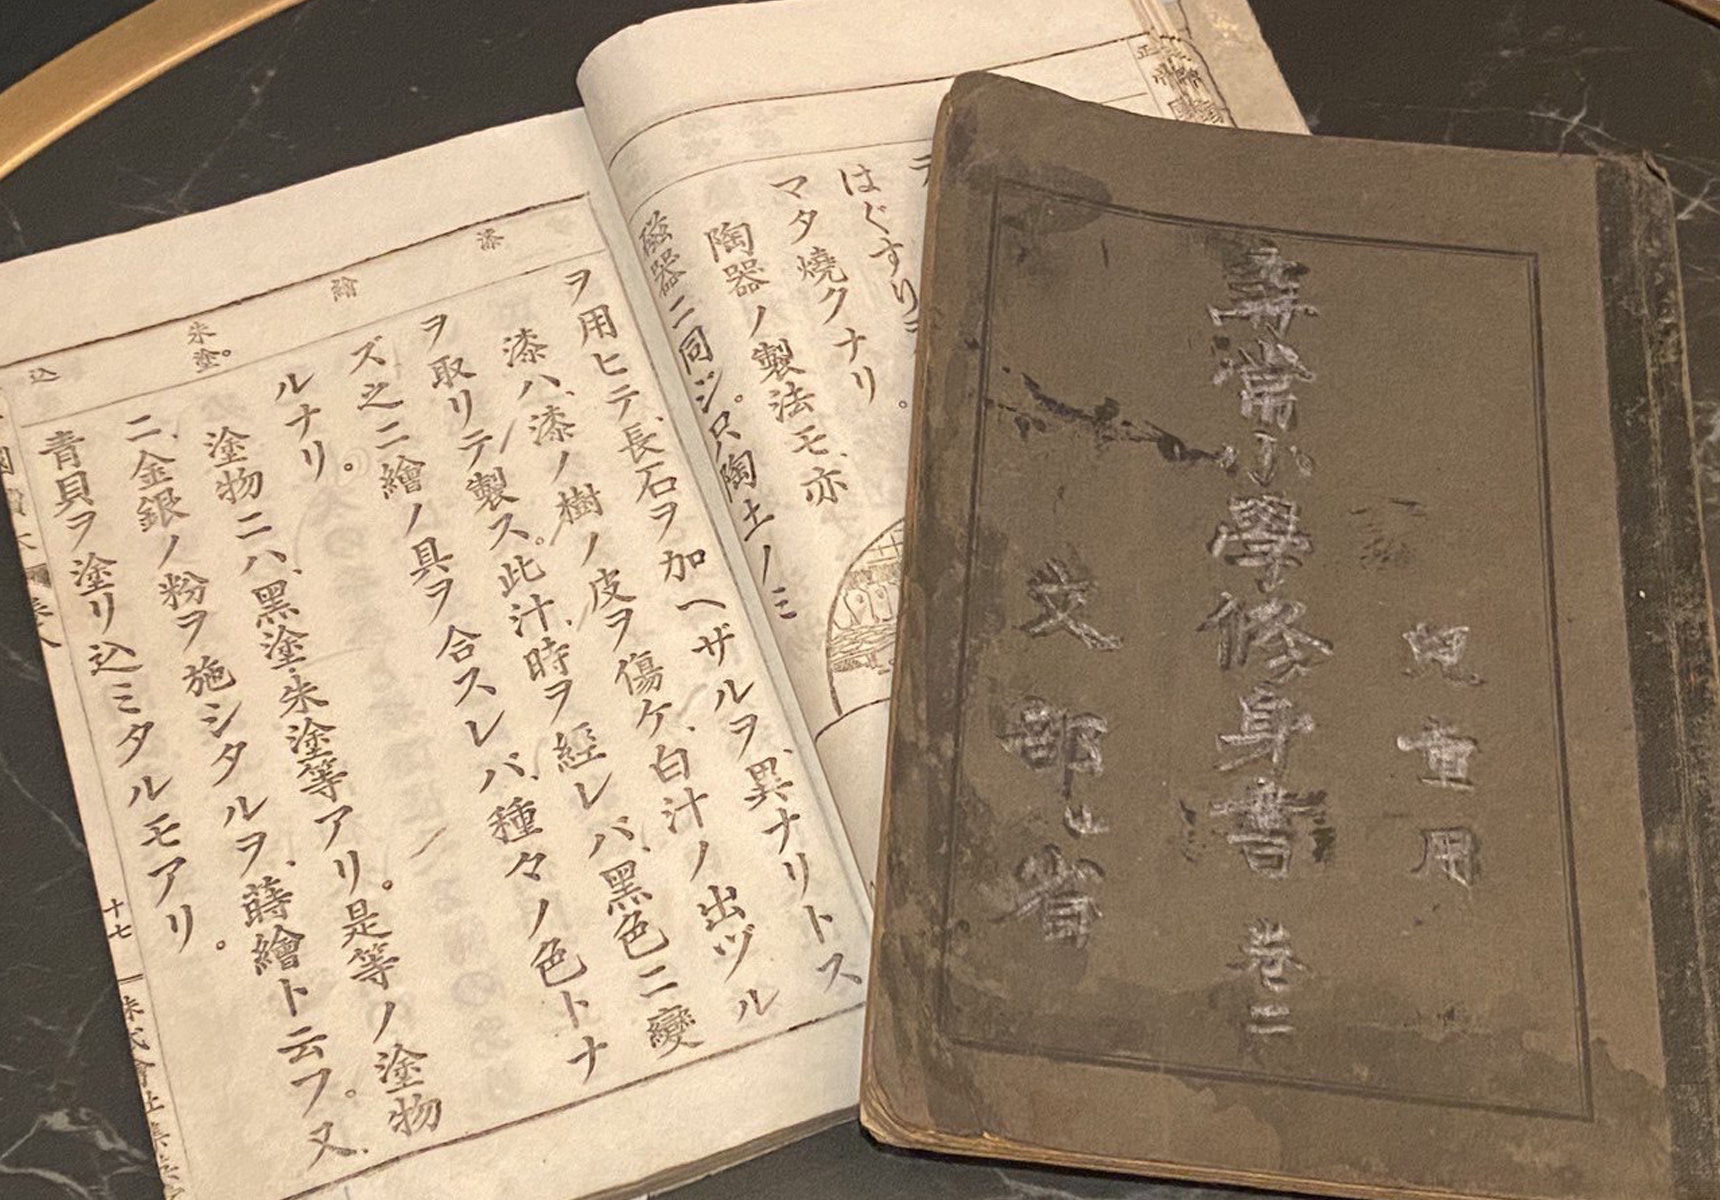 はぐすりヲ
マタ燒クナリ。
陶器ノ製法モ、亦
磁器ニ同ジ。只陶土ノミ
ヲ用ヒテ、長石ヲ加ヘザルヲ、異ナリトス
漆ハ、漆ノ樹ノ皮ヲ傷ケ、白汁ノ出ヅル
ヲ取リテ製ス。此汁、時ヲ經レバ、黑色ニ變
ズ之ニ繪ノ具ヲ合スレバ、種々ノ色トナ
ルナリ。
塗物ニハ、黑塗・朱塗等アリ。是等ノ塗物
ニ、金銀ノ粉ヲ施シタルヲ、蒔繪ト云フ。又
青貝ヲ塗リ込ミタルモアリ。
漆
繪
朱塗。
込
十七
兒童用
尋常小學修身書 卷二
文部省